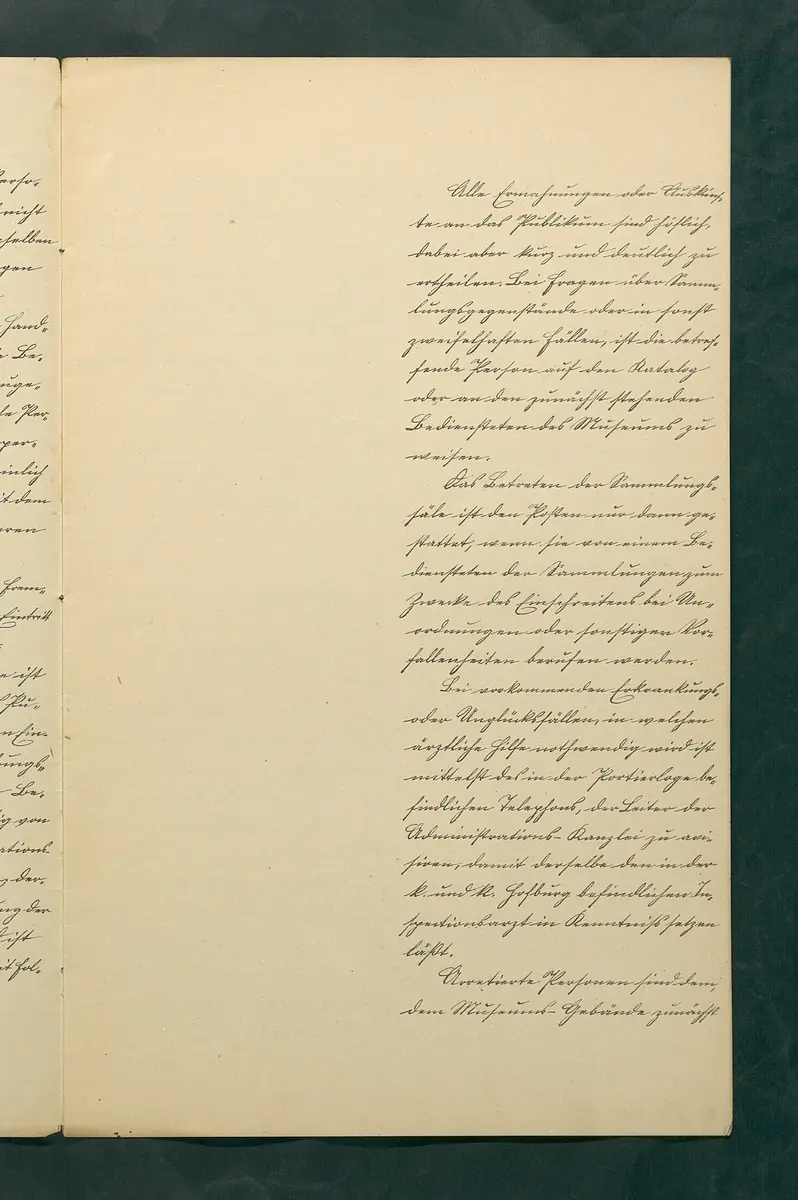 erso-
nicht
selben
gen
Hand-
e Be-
uge-
le Per-
per-
inlich
it dem
aren
Frem-
Eintritt
e ist
s Pu-
n Ein-
ungs-
Be-
ig von
ations-
z der-
ng der
ist
it fol-
Alle Ermahnungen oder Auskünf-
te an das Publikum sind höflich,
dabei aber kurz und deutlich zu
ertheilen. Bei Fragen über Samm-
lungsgegenstände oder in sonst
zweifelhaften Fällen, ist die betref-
fende Person auf den Katalog
oder an den zunächst stehenden
Bediensteten des Museums zu
weisen.
Das Betreten der Sammlungs-
säle ist den Posten nur dann ge-
stattet, wenn sie von einem Be-
diensteten der Sammlungen zum
Zwecke des Einschreitens bei Un-
ordnungen oder sonstigen Vor-
fallenheiten berufen werden.
Bei vorkommenden Erkrankungs-
oder Unglücksfällen, in welchen
ärztliche Hilfe nothwendig wird ist
mittelst des in der Portierloge be-
findlichen Telephons, der Leiter der
Administrations-Kanzlei zu avi-
siren, damit derselbe den in der
k. und k. Hofburg befindlichen In-
spectionsarzt in Kenntniss setzen
läßt.
Arretierte Personen sind dem,
dem Museums-Gebäude zunächst